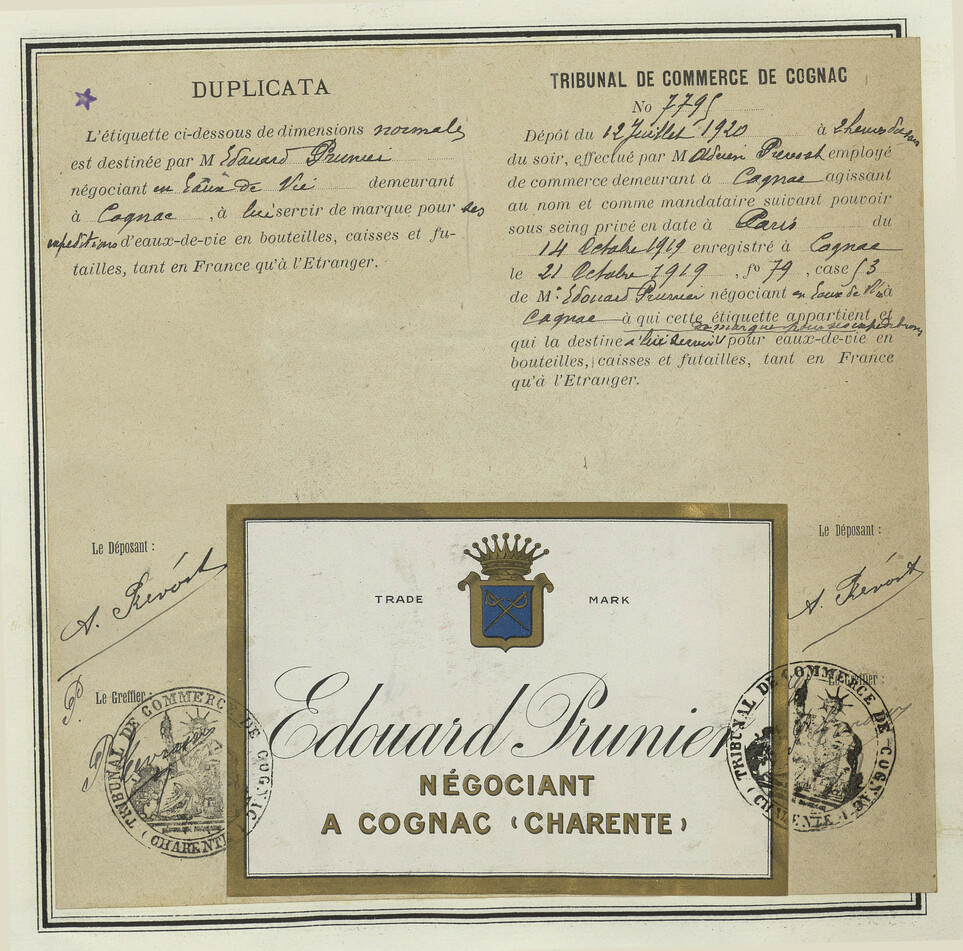 DUPLICATA
L'étiquette ci-dessous de dimensions normales
est destinée par M Edouard Prunier
négociant en Eaux de Vie demeurant
à Cognac, à lui servir de marque pour ses
expéditions d'eaux-de-vie en bouteilles, caisses et fu-
tailles, tant en France qu'à l'Etranger.
TRIBUNAL DE COMMERCE DE COGNAC
No 7795
Dépôt du 12 Juillet 1920 à 2 heures
du soir, effectué par M Prevost employé
de commerce demeurant à Cognac agissant
au nom et comme mandataire suivant pouvoir
sous seing privé en date à Paris du
14 Octobre 1919 enregistré à Cognac
le 21 Octobre 1919, fo 79, case 53
de Mr Edouard Prunier négociant en Eaux de Vie à
Cognac à qui cette étiquette appartient et
de marque pour ses expéditions
qui la destine à lui servir pour eaux-de-vie en
bouteilles, caisses et futailles, tant en France
qu'à l'Etranger.
Le Déposant :
A. Prévost
Le Greffier :
TRIBUNAL DE COMMERCE DE COGNAC
(CHARENTE)
TRADE MARK
Edouard Prunier
NÉGOCIANT
A COGNAC (CHARENTE)
Le Déposant :
A. Prévost
Le Greffier :
TRIBUNAL DE COMMERCE DE COGNAC
(CHARENTE)